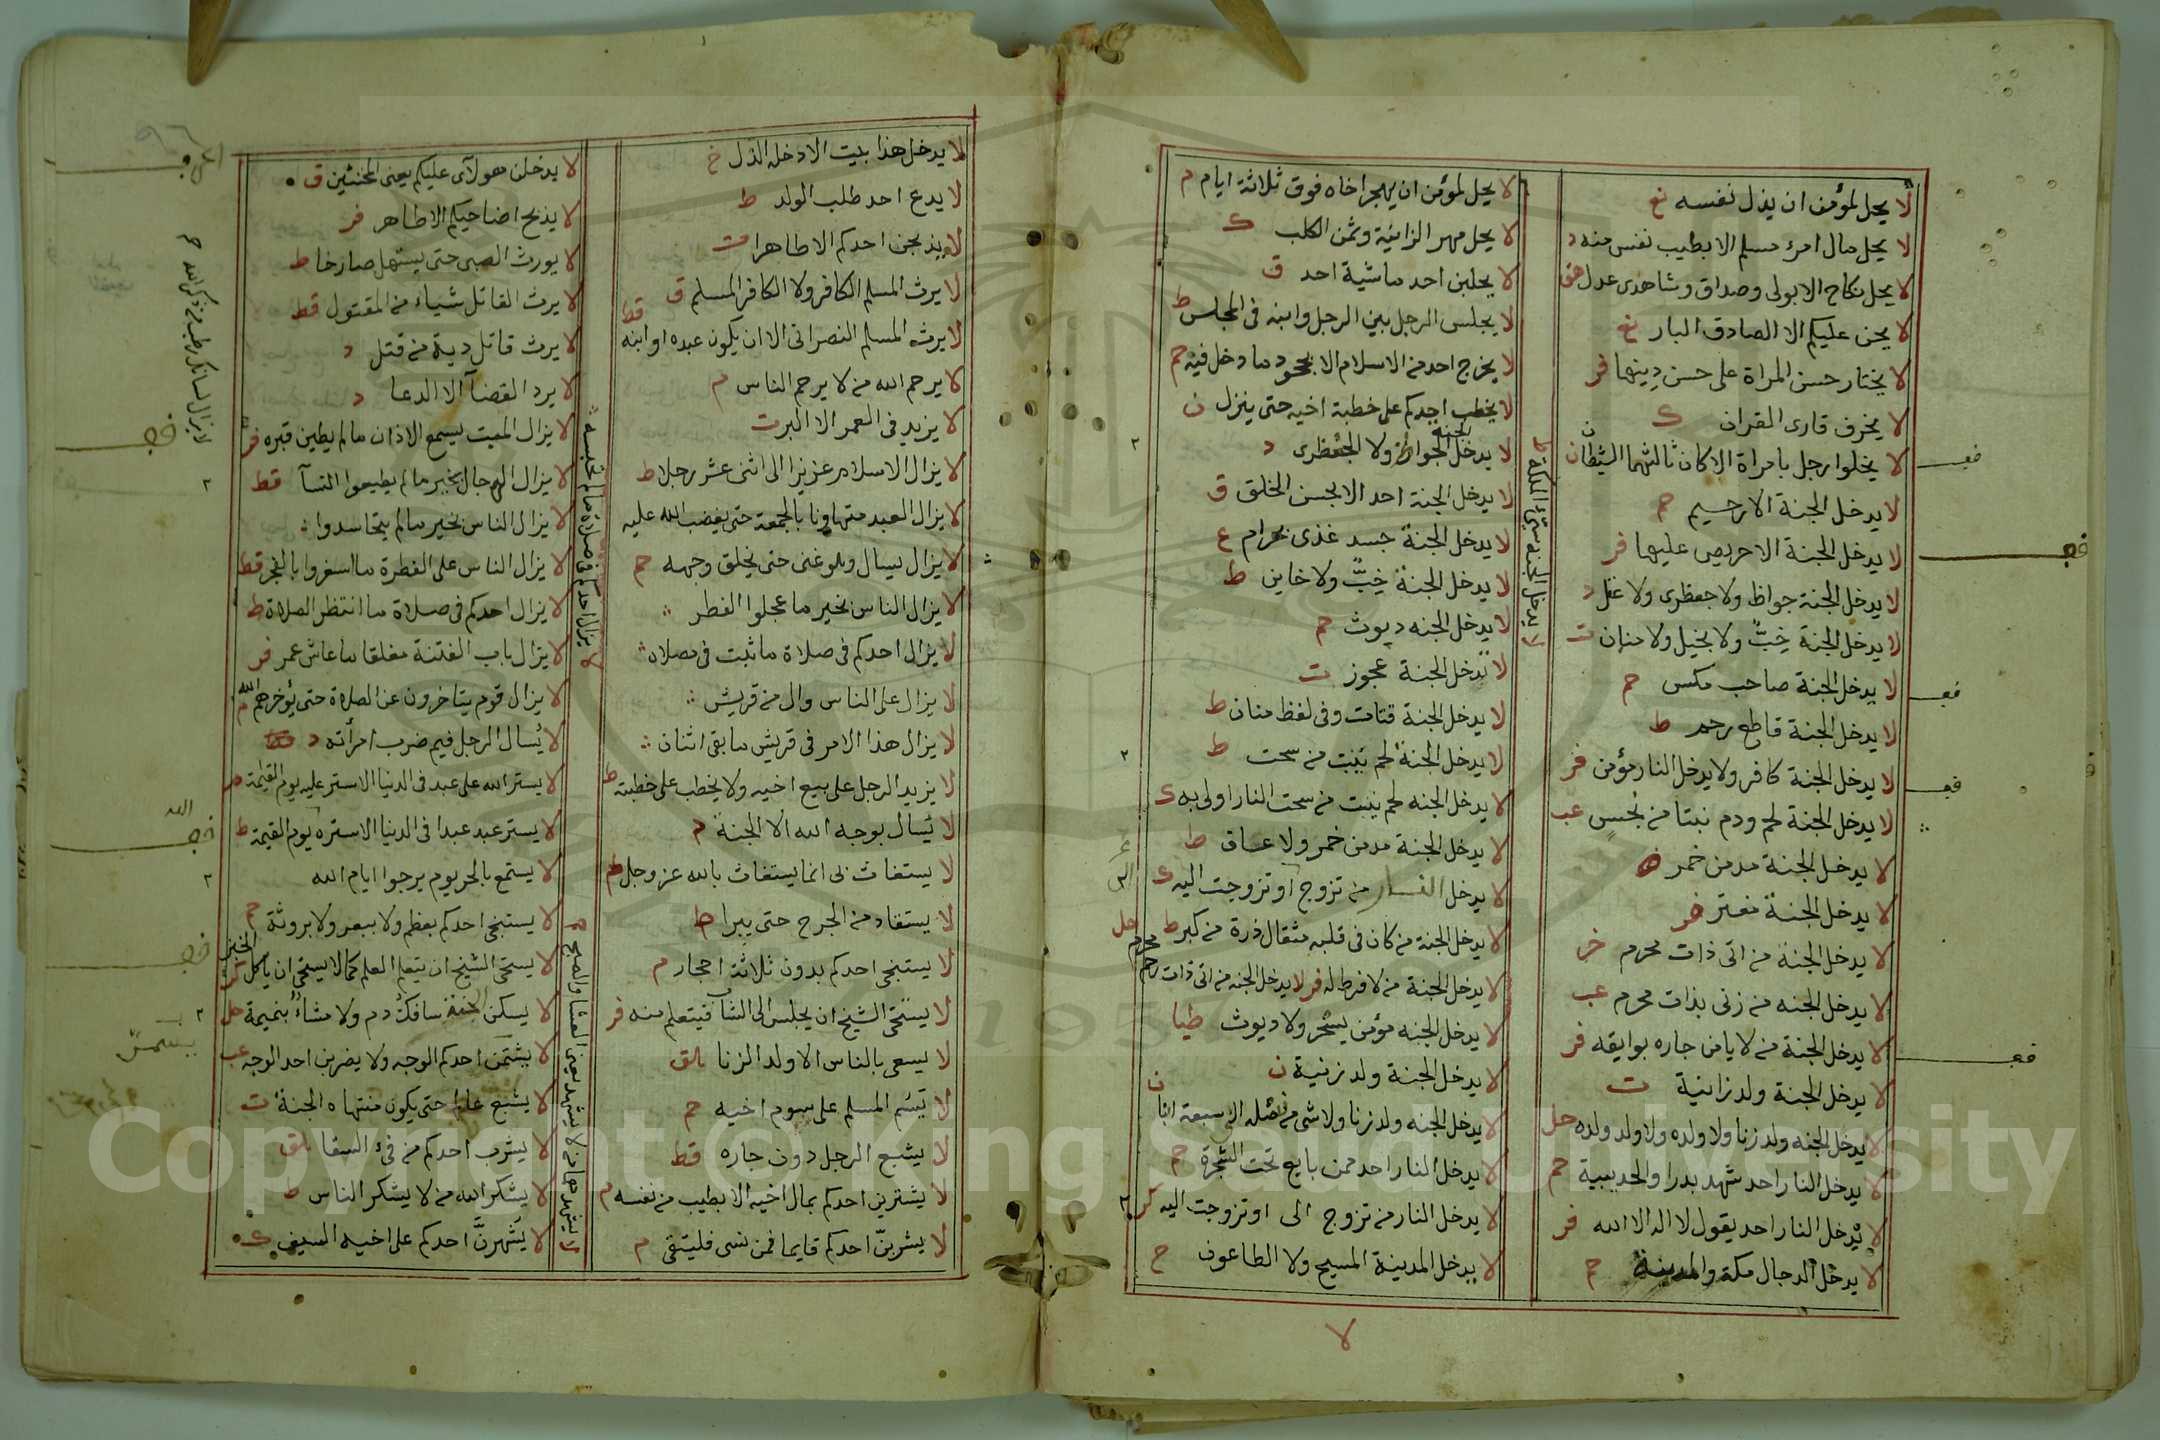 لا يحل لمؤمن ان يذل نفسه نع
لا يحل مال امرء مسلم الا بطيب نفس منه د
لا يحل نكاح الا بولى وصداق وشاهدى عدل هق
لا يحن عليكم الا الصادق البار نع
لا يختار حسن المراة على حسن دينها فر
لا يخرف قارى القران ك
لا يخلوا رجل بامراة الا كان ثالثهما الشيطان ن
لا يدخل الجنة الا رحيم م
لا يدخل الجنة الا حريص عليها فر
لا يدخل الجنة جواظ ولا جعظرى ولا د
لا يدخل الجنة خِبٌّ ولا بخيل ولا منان ت
لا يدخل الجنة صاحب مكس حم
لا يدخل الجنة قاطع رحم ط
لا يدخل الجنة كافر ولا يدخل النار مؤمن فر
لا يدخل الجنة لحم ودم نبتا من نجس عب
لا يدخل الجنة مدمن خمر
لا يدخل الجنة فر
لا يدخل الجنة من اتى ذات محرم خر
لا يدخل الجنه من زنى بذات محرم عب
لا يدخل الجنة من لا يامن جاره بوايقه فر
لا يدخل الجنة ولد زانية ت
لا يدخل الجنه ولد زنا ولا ولده ولا ولد ولده حل
لا يدخل النار احد شهد بدرا والحديبية حم
لا يدخل النار احد يقول لا اله الا الله فر
لا يدخل الدجال مكة والمدينة م
لا يدخل الجنه سيئ الملكة ط
لا يحل لمؤمن ان يهجر اخاه فوق ثلاثة ايام م
لا يحل مهر الزانية وثمن الكلب ك
لا يحلبن احد ماشية احد ق
لا يجلس الرجل بين الرجل وابنه فى المجلس ط
لا يخرج احد من الاسلام الا بجحود ما دخل فيه حم
لا يخطب احدكم على خطبة اخيه حتى ينزل ن
لا يدخل الجنة الجواظ ولا الجعظرى د
لا يدخل الجنة احد الا بحسن الخلق ق
لا يدخل الجنة جسد غذى بحرام ع
لا يدخل الجنة خِبٌّ ولا خاين ط
لا يدخل الجنه ديوث حم
لا تدخل الجنة عجوز ت
لا يدخل الجنة قتات وفى لفظ منان ط
لا يدخل الجنة لحم يَنبت من سحت ط
لا يدخل الجنه لحم نبت من سحت النار اولى به ك
لا يدخل الجنة مدمن خمر ولا عاق ط
لا يدخل النار من تزوج او تزوجت اليه ك
لا يدخل الجنة من كان فى قلبه مثقال ذرة من كبر ط
لا يدخل الجنة من لا فرط له فر لا يدخل الجنه من اتى ذات رحم محرم حل
لا يدخل الجنه مؤمن بسحر ولا ديوث طيا
لا يدخل الجنة ولد زنية ن
لا يدخل الجنه ولد زنا ولا شى من نسله الى سبعة ابا ن
لا يدخل النار احد ممن بايع تحت الشجرة م
لا يدخل النار من تزوج الى او تزوجت اليه كر
لا يدخل المدينة المسيح ولا الطاعون ح
لا
لا يدخل هذا بيت الا دخله الذل خ
لا يدع احد طلب الولد ط
لا يذبحن احدكم الا طاهرا ت
لا يرث المسلم الكافر ولا الكافر المسلم ق
لا يرث المسلم النصرانى الا ان يكون عبده او ابنه قط
لا يرحم الله من لا يرحم الناس م
لا يزيد فى العمر الا البر ت
لا يزال الاسلام عزيزا الى اثنى عشر رجلا ط
لا يزال العبد متهاونا بالجمعة حتى يغضب الله عليه
لا يزال يسال وهو غنى حتى يخلق وجهه حم
لا يزال الناس بخير ما عجلوا الفطر
لا يزال احدكم فى صلاة ما ثبت فى مصلاه
لا يزال على الناس وال من قريش
لا يزال هذا الامر فى قريش ما بقى اثنان
لا يزيد الرجل على بيع اخيه ولا يخطب على خطبته ط
لا يُسال بوجه الله الا الجنة م
لا يستغاث بى انما يستغاث بالله عز وجل ط
لا يستقاد من الجرح حتى يبرا ط
لا يستنجى احدكم بدون ثلاثة احجار م
لا يستحى الشيخ ان يجلس الى الشاب فيتعلم منه فر
لا يسعى بالناس الا ولد الزنا
لا يَسُم المسلم على سوم اخيه م
لا يشبع الرجل دون جاره قط
لا يشترين احدكم بمال اخيه الا بطيب من نفسه م
لا يشربنّ احدكم قايما فمن نسى فليتقى م
لا يزال احدكم فى صلاة ما لم تحبسه
لا يشهدهما من لا يشهد يعنى العشا والصبح
لا يدخلن هولاى عليكم يعنى المخنثين ق
لا يذبح اضاحيكم الا طاهر فر
لا يورث الصبى حتى يستهل صارخا ط
لا يرث القاتل شياء من المقتول قط
لا يرث قاتل دية من قتل د
لا يرد القضآ الا الدعا د
لا يزال الميت يسمع الاذان ما لم يطين قبره فر
لا يزال الرجال بخير ما لم يطيعوا النسآ قط
لا يزال الناس بخير مالم يتحاسدوا
لا يزال الناس على الفطرة ما اسفروا بالفجر قط
لا يزال احدكم فى صلاة ما انتظر الصلاة ط
لا يزال باب الفتنة مغلقا ما عاش عمر فر
لا يزال قوم يتاخرون عن الصلاة حتى يؤخرهم الله م
لا يُسال الرجل فيم ضرب امرأته د
لا يستر الله على عبد فى الدنيا الا ستر عليه يوم القيمة م
لا يستر عبد عبدا فى الدنيا الا ستره يوم القيمة ط
لا يستمع بالحر يوم يرجوا ايام الله
لا يستنجى احدكم بعظم ولا ببعر ولا بروثة م
لا يستحى الشيخ ان يتعلم العلم كما لا يستحى ان ياكل الخبز كر
لا يسكن الجنة سافكُ دم ولا مشاءٌ بنميمة حل
لا يشتمن احدكم الوجه ولا يضربن احد الوجه عب
لا يشبع عالم حتى يكون منتهاه الجنة ت
لا يشرب احدكم من فىء السقا
لا يشكر الله من لا يشكر الناس ط
لا يَشهرنَّ احدكم على اخيه السيف ك
لا يزال لسانك رطبا من ذكر الله م
Copyright © King Saud University